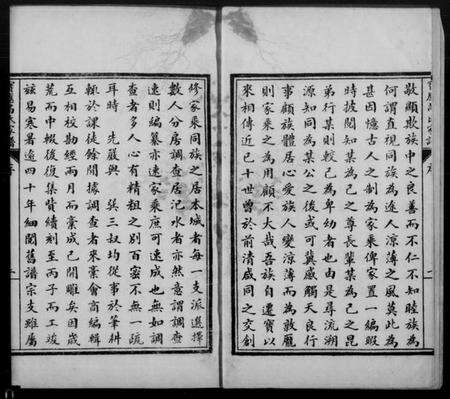 歟顯歟族中之良善而不仁不知睦族為
何謂直視同族為途人凉薄之風莫此為
甚因憶古人之制為家乘俾家置一編暇
時披閱知某為己之尊長輩某為己之昆
弟行某則較己為卑幼者也由是尋流溯
源知同為某公之後或可冀感觸天良行
事顧族體居心愛族人變凉薄而為敦龐
則家乘之為用顧不大哉吾族自遷寶以
來相傳近已十世曾於前清咸同之交創
修家乘同族之居本城者每一支派選擇
數人分房調查居汜水者亦然意謂調查
速則編纂亦速家乘庶可速成也無如調
查者多人心有精粗之別百密不無一疏
耳時 先嚴與 三叔均從事於筆耕
輒於課徒餘閒據調查者來彙會商編輯
互相校勘經兩月而稾成已開雕矣因歲
荒而中輟後復集貲續刻至丙子而工竣
茲易寒暑逾四十年細閱舊譜宗支雖屬